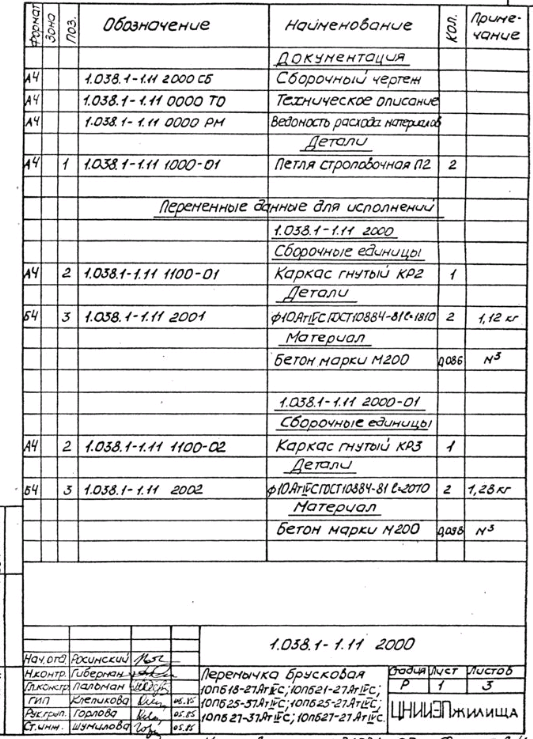 Формат Зона Поз. Обозначение Наименование Кол. Приме-чание
Документация
А4 1.038.1-1.11 2000 СБ Сборочный чертеж
А4 1.038.1-1.11 0000 ТО Техническое описание
А4 1.038.1-1.11 0000 РМ Ведомость расхода материалов
Детали
А4 1 1.038.1-1.11 1000-01 Петля строповочная П2 2
Переменные данные для исполнений
1.038.1-1.11 2000
Сборочные единицы
А4 2 1.038.1-1.11 1100-01 Каркас гнутый КР2 1
Детали
Б4 3 1.038.1-1.11 2001 ф10АтIVС ГОСТ10884-81 ℓ=1810 2 1,12 кг
Материал
Бетон марки М200 0,086 м³
1.038.1-1.11 2000-01
Сборочные единицы
А4 2 1.038.1-1.11 1100-02 Каркас гнутый КР3 1
Детали
Б4 3 1.038.1-1.11 2002 ф10АтIVС ГОСТ10884-81 ℓ=2070 2 1,28 кг
Материал
Бетон марки М200 0,098 м³
1.038.1-1.11 2000
Нач.отд. Росинский
Н.контр. Гиберман
Гл.констр. Пальман
ГИП Клепикова 05.85
Рук.груп. Горлова 05.85
Ст.инж. Шумилова 05.85
Перемычка брусковая
10ПБ18-27АтIVС; 10ПБ21-27АтIVС;
10ПБ25-37АтIVС; 10ПБ25-27АтIVС;
10ПБ27-37АтIVС; 10ПБ27-27АтIVС.
Стадия Лист Листов
Р 1 3
ЦНИИЭПжилища